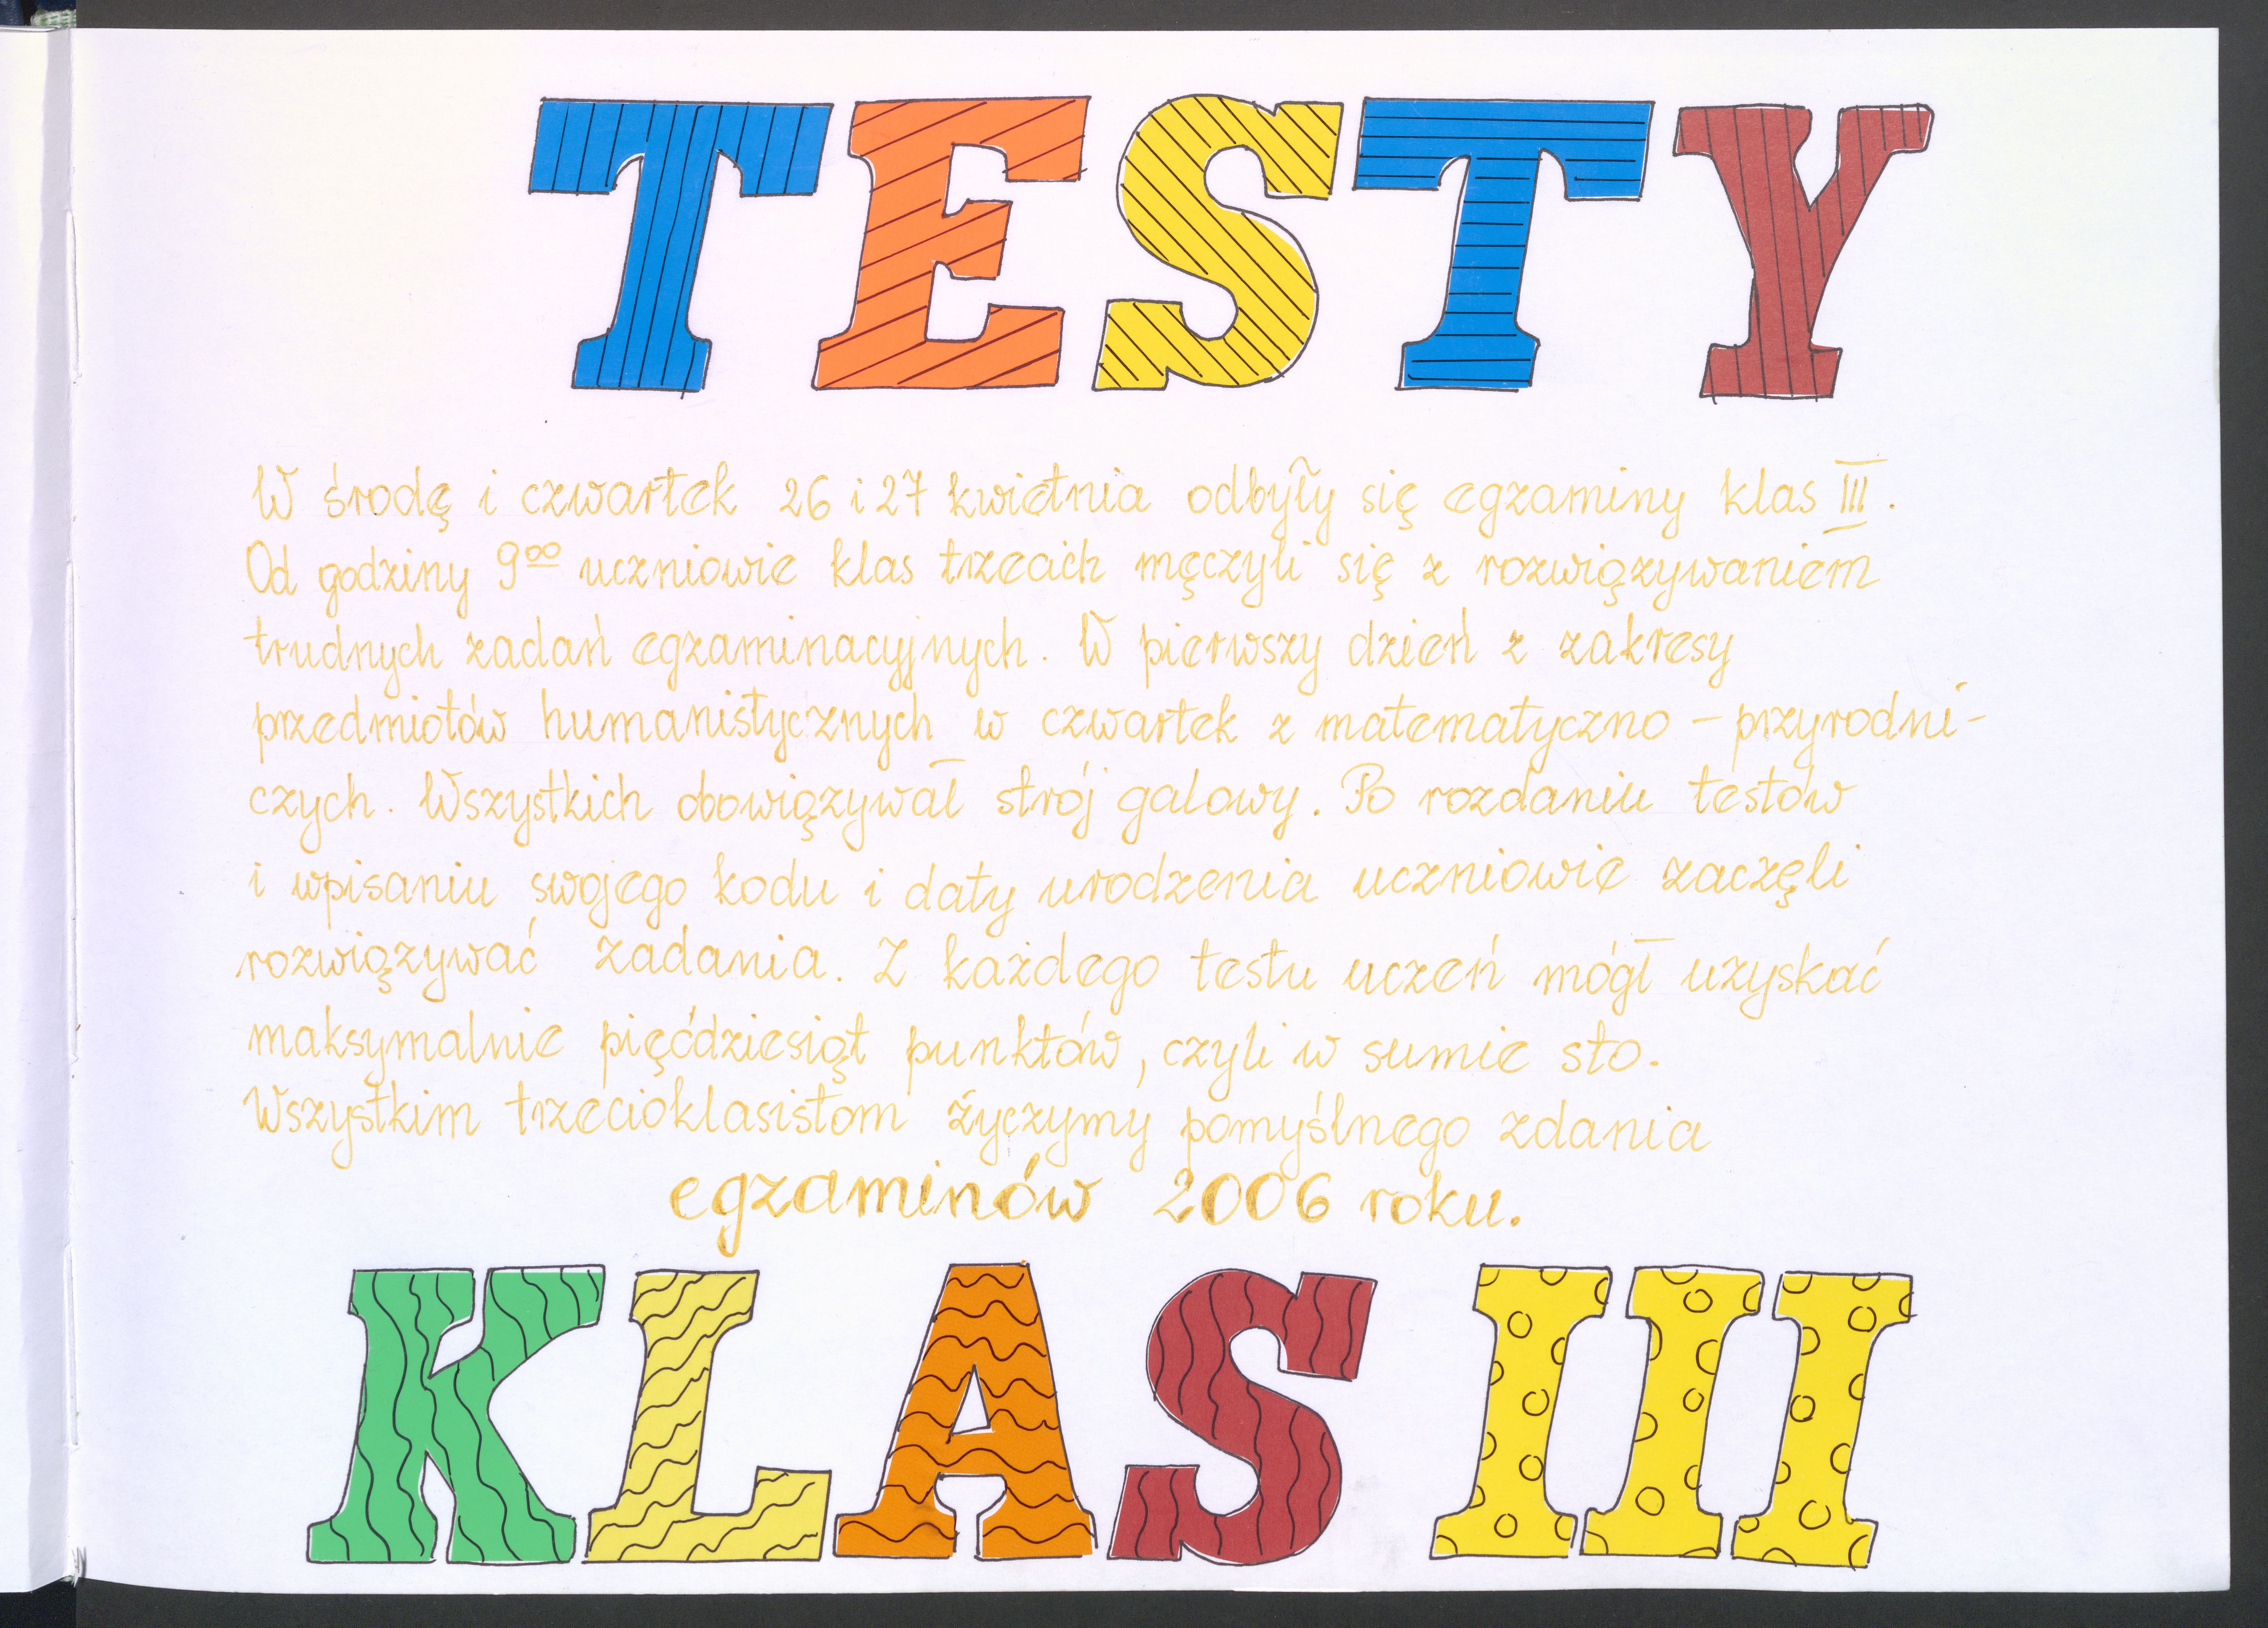 TESTY
W środę i czwartek 26 i 27 kwietnia odbyły się egzaminy klas III.
Od godziny 9⁰⁰ uczniowie klas trzecich męczyli się z rozwiązywaniem
trudnych zadań egzaminacyjnych. W pierwszy dzień z zakresy
przedmiotów humanistycznych w czwartek z matematyczno - przyrodni-
czych. Wszystkich obowiązywał strój galowy. Po rozdaniu testów
i wpisaniu swojego kodu i daty urodzenia uczniowie zaczęli
rozwiązywać zadania. Z każdego testu uczeń mógł uzyskać
maksymalnie pięćdziesiąt punktów, czyli w sumie sto.
Wszystkim trzecioklasistom życzymy pomyślnego zdania
egzaminów 2006 roku.
KLAS III